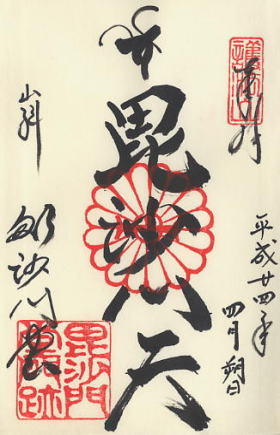 奉拝
平成廿四年
四月朔日
毘沙門天
山科
毘沙門堂
毘沙門
門跡